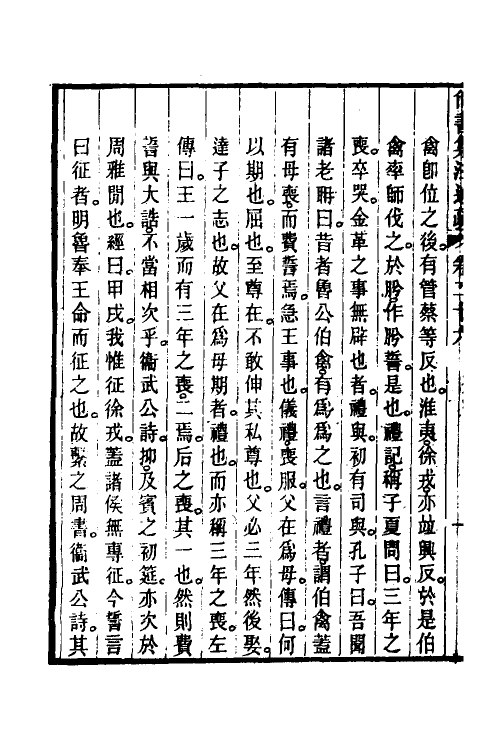 禽卽位之後。有管蔡等反也。淮夷。徐戎。亦竝興反。於是伯
禽率師伐之。於肹。作肹誓。是也。禮記。稱子夏問曰。三年之
喪。卒哭。金革之事無辟也者。禮與。初有司與。孔子曰。吾聞
諸老聃曰。昔者魯公伯禽。有爲爲之也。言禮者。謂伯禽蓋
有母喪。而費誓焉。急王事也。儀禮。喪服。父在爲母。傳曰。何
以期也。屈也。至尊在。不敢伸其私尊也。父必三年然後娶。
達子之志也。故父在爲母期者。禮也。而亦稱三年之喪。左
傳曰。王一歲而有三年之喪。二焉。后之喪。其一也。然則費
誓與大誥。不當相次乎。衞武公詩。抑。及賓之初筵。亦次於
周雅閒也。經曰。甲戌。我惟征徐戎。蓋諸侯無專征。今誓言
曰征者。明魯奉王命而征之也。故繫之周書。衞武公詩其